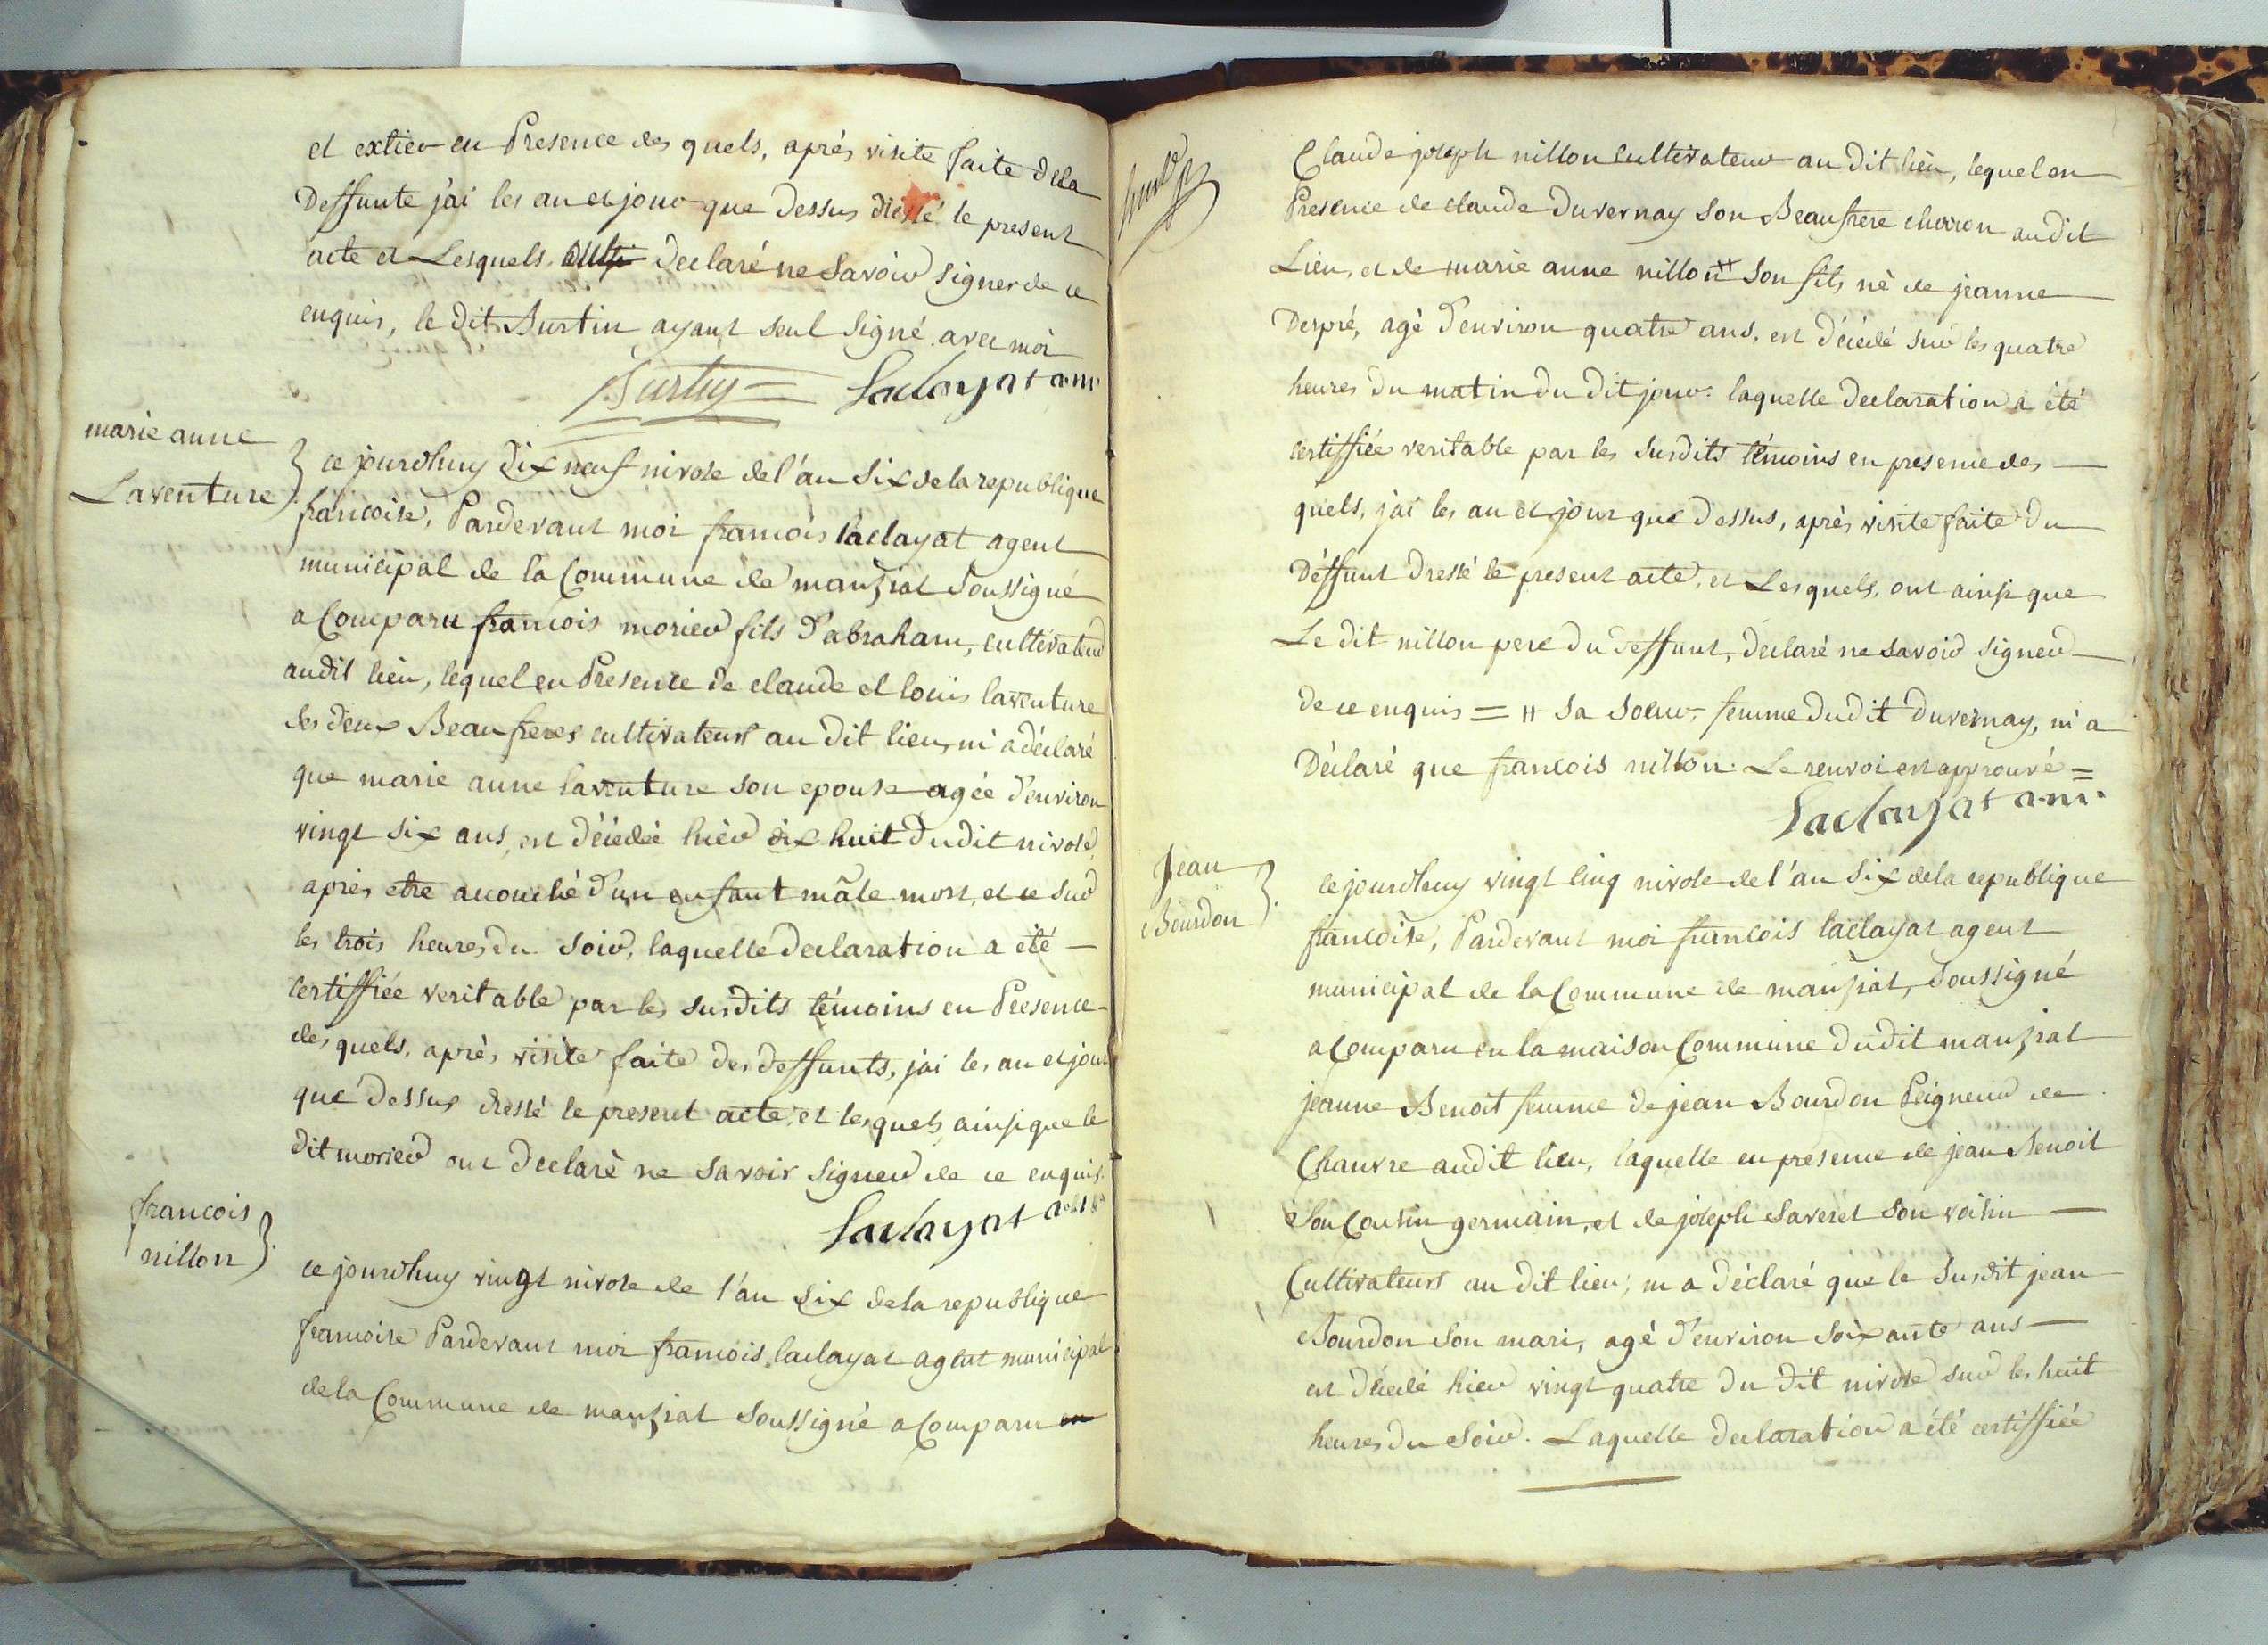 et extier en Presence des quels, aprés visite faite dela
Deffunte j'ai les an et jour que dessus dressé le present
acte et Lesquels declaré ne Savoir signer de ce
enquis, le dit Burtin ayant seul signé avec moi
Burtin Laclayat a.m.
marie anne
Laventure
ce jourdhuy dix neuf nivose de l'an six de la republique
francoise, Pardevant moi francois laclayat agent
municipal de la Commune de manziat Soussigné
a Comparu francois morier fils d'abraham, cultivateur
audit lieu, lequel en Presence de claude et louis laventure
ses deux Beaufreres cultivateurs au dit lieu, m'a déclaré
que marie anne laventure son epouse agée d'environ
vingt six ans, est décédée hier dix huit dudit nivose,
aprés etre acouché d'un enfant mâle mort, et ce sur
les trois heures du soir, laquelle declaration a été —
certiffiée veritable par les susdits témoins en Presence
des quels, aprés visite faite des deffunts, j'ai les an et jour
que dessus dressé le present acte, et lesquels ainsi que le
dit morier ont declaré ne savoir signer de ce enquis.
Laclayat a.m.
francois
nillon
ce jourdhuy vingt nivose de l'an six de la republique
francoise Pardevant moi francois laclayat agent municipal
de la Commune de manziat soussigné a Comparu en
Claude joseph nillon cultivateur au dit lieu, lequel en
Presence de claude Duvernay son Beaufrere charron audit
Lieu, et de marie anne nillon # son fils né de jeanne
Despré, agé d'environ quatre ans, est décédé sur les quatre
heures du matin du dit jour. laquelle declaration a été
certiffiée veritable par les susdits témoins en presence des —
quels, j'ai les an et jour que dessus, aprés visite faite du
Deffunt dressé le present acte, et Lesquels, ont ainsi que
Le dit nillon pere du deffunt, declaré ne savoir signer
de ce enquis = # sa soeur, femme dudit duvernay, m'a
Déclaré que francois nillon. Le renvoi est approuvé =
Laclayat a.m.
Jean
Bourdon
ce jourdhuy vingt cinq nivose de l'an six de la republique
francoise, Pardevant moi francois laclayat agent
municipal de la Commune de manziat, Soussigné
a Comparu en la maison Commune dudit manziat
jeanne Benoit femme de jean Bourdon Peigneur de
Chanvre audit lieu, laquelle en presence de jean Benoit
son Cousin germain, et de joseph Saveret son voisin —
Cultivateurs au dit lieu, m'a déclaré que le susdit jean
Bourdon son mari, agé d'environ soixante ans —
est décédé hier vingt quatre du dit nivose sur les huit
heures du soir. Laquelle declaration a été certiffiée